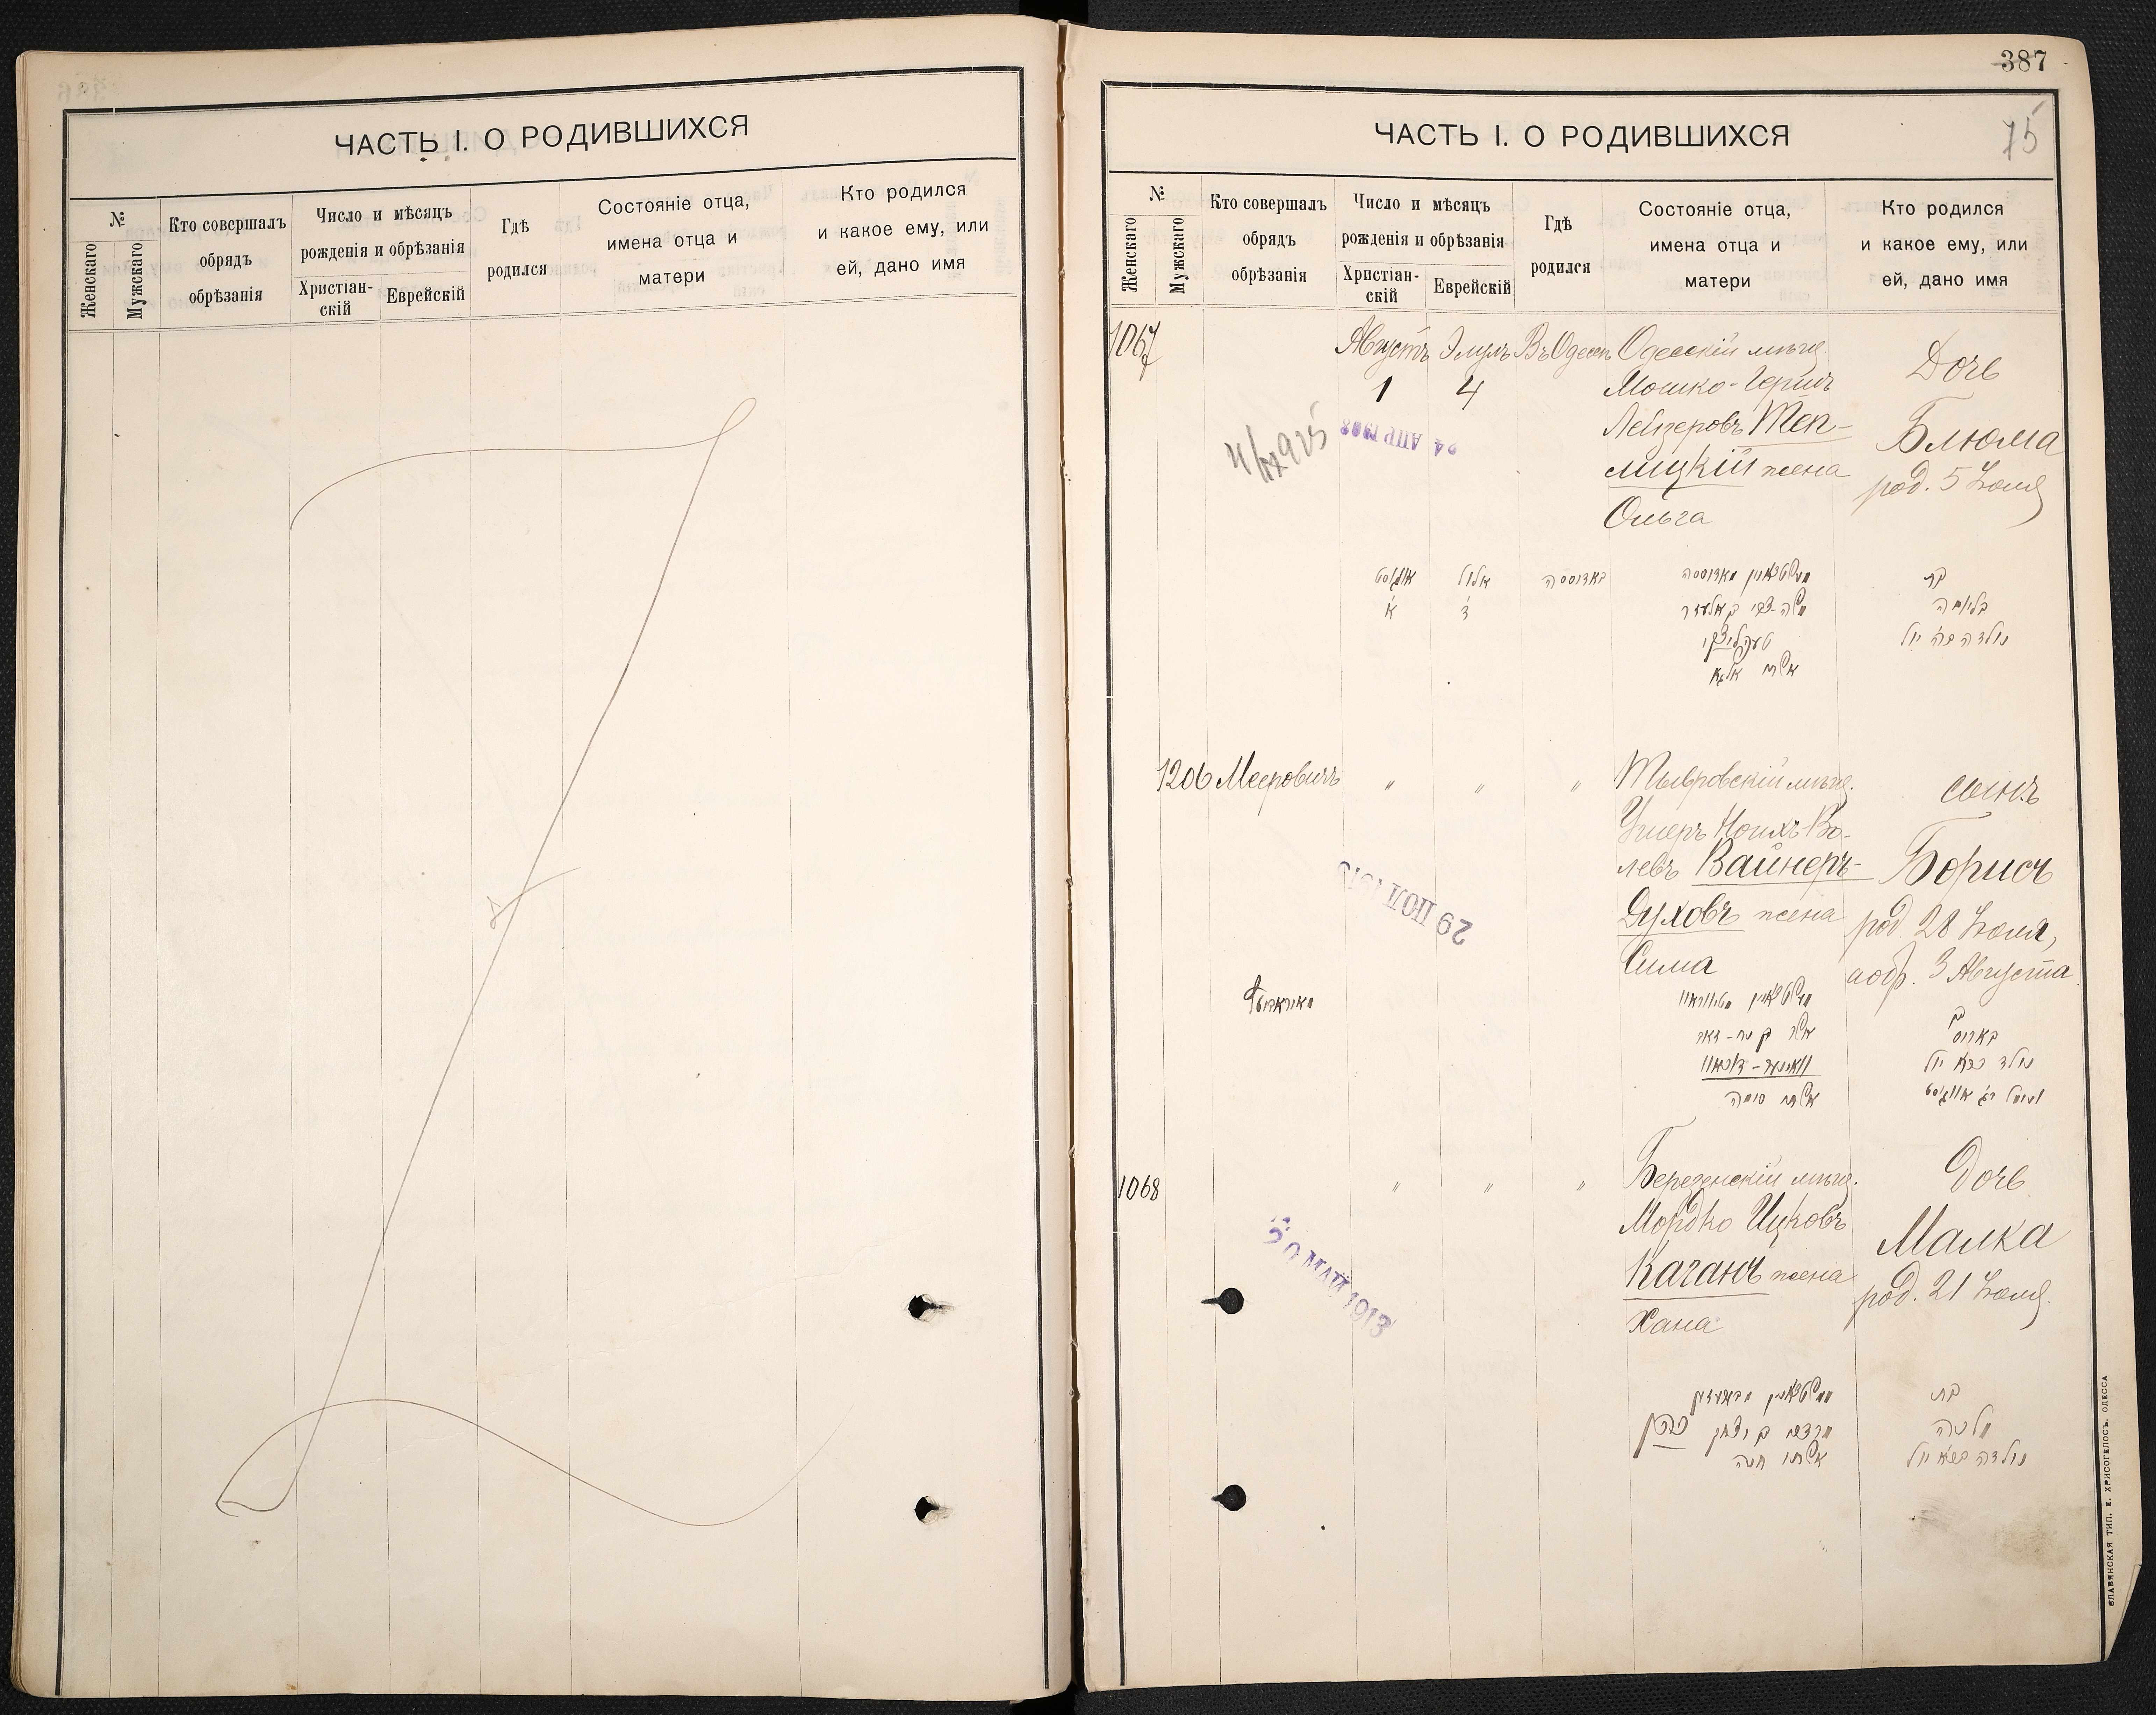 ЧАСТЬ I. О РОДИВШИХСЯ
№
Женскаго
Мужскаго
Кто совершалъ
обрядъ
обрѣзанія
Число и мѣсяцъ
рожденія и обрѣзанія
Христіан-
скій
Еврейскій
Гдѣ
родился
Состояніе отца,
имена отца и
матери
Кто родился
и какое ему, или
ей, дано имя
387
ЧАСТЬ I. О РОДИВШИХСЯ
75
№
Женскаго
Мужскаго
Кто совершалъ
обрядъ
обрѣзанія
Число и мѣсяцъ
рожденія и обрѣзанія
Христіан-
скій
Еврейскій
Гдѣ
родился
Состояніе отца,
имена отца и
матери
Кто родился
и какое ему, или
ей, дано имя
1067
Августъ
1
Элулъ
4
Въ Одессѣ
Одесскій мѣщ.
Мошко-Гершъ
Лейзеровъ Теп-
лицкій жена
Ольга
Дочь
Блюма
род. 5 Іюля
אויגוסט
א'
אלול
ד'
באדוססה
בת
בליומה
1206
Мееровичъ
"
"
"
Тывровскій мѣщ.
левъ Вайнеръ-
Духовъ жена
Сима
сынъ
Борисъ
род. 28 Іюля,
обр. 3 Августа
29 ІЮЛ 1913
אשתו סימה
1068
"
"
"
Березенскій мѣщ.
Мордко Ицковъ
Каганъ жена
Хана
Дочь
Малка
род. 21 Іюля.
30 МАЙ 1913
מרדכי בן יצחק כהן
אשתו חנה
בת
מלכה
СЛАВЯНСКАЯ ТИП. Е. ХРИСОГЕЛОСЪ. ОДЕССА